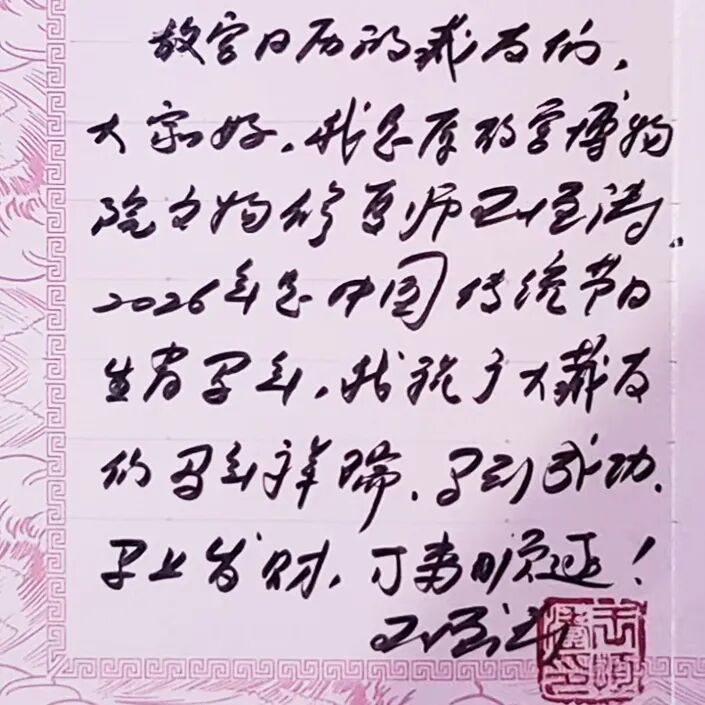 故宫日历的藏友们,
大家好。我是原故宫博物
院文物修复师王
2026年是中国传统节日
生肖马年,我祝广大藏友
们马年祥瑞、马到成功、
马上发财,万事顺遂!
王